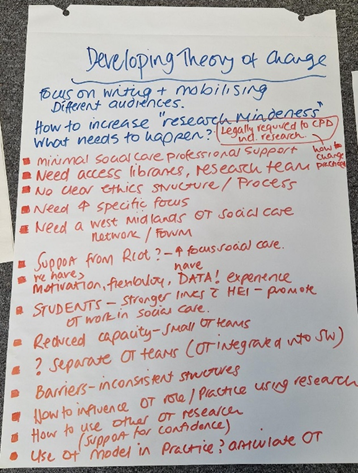 Developing Theory of Change
Focus on writing + mobilising
Different audiences.
How to increase "research mindeness"
What needs to happen?
Legally required to CPD
incl research
how to
change
practice
minimal social care professional support
Need access libraries, research team
No clear ethics structure / Process
Need ↑ specific focus
Need a West Midlands OT social care
network / Forum
Support from Riot? - ↑ focus social care.
we have
have
Motivation, flexibility, DATA! experience
STUDENTS - stronger links ↑ HEI - promote
OT work in social care.
Reduced capacity - small OT teams
? Separate OT teams (OT integrated into SW)
Barriers - inconsistent structures
How to influence OT role / Practice using research
How to use other OT research
(support for confidence)
Use of model in Practice? articulate OT